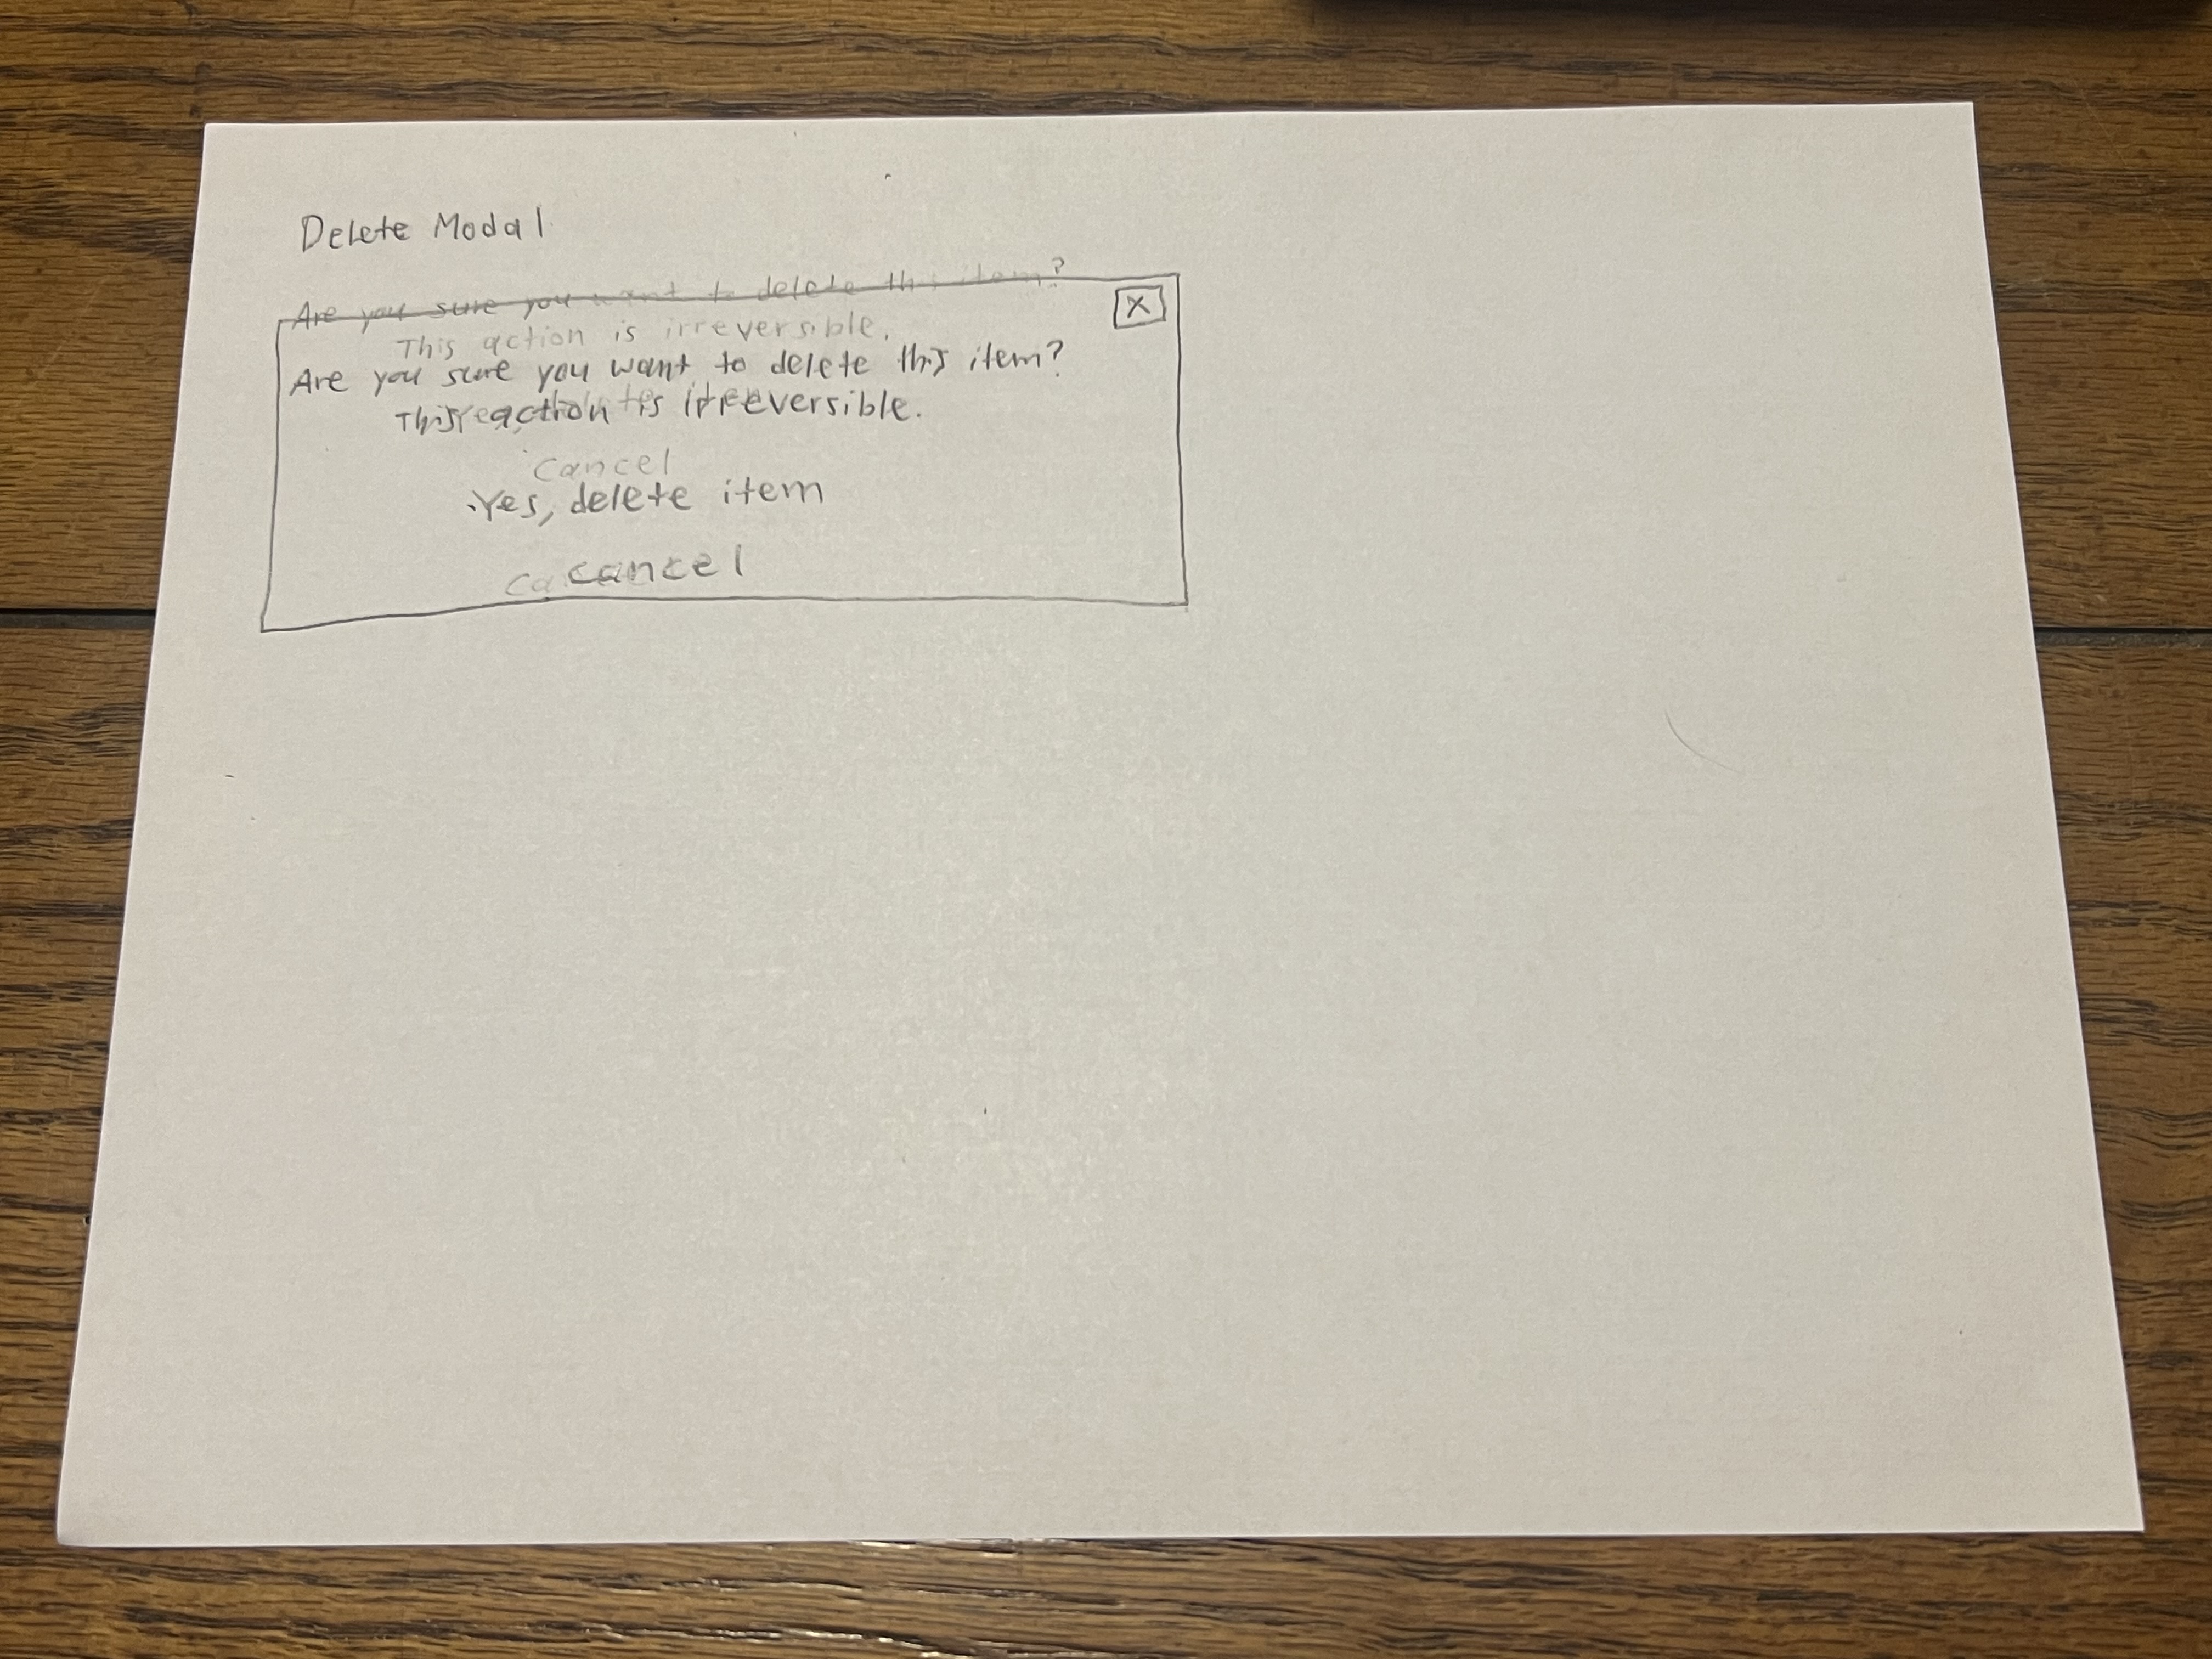 Delete Modal
Are you sure you want to delete this item?
X
This action is irreversible.
Are you sure you want to delete this item?
This action is irreversible.
Cancel
Yes, delete item
cancel